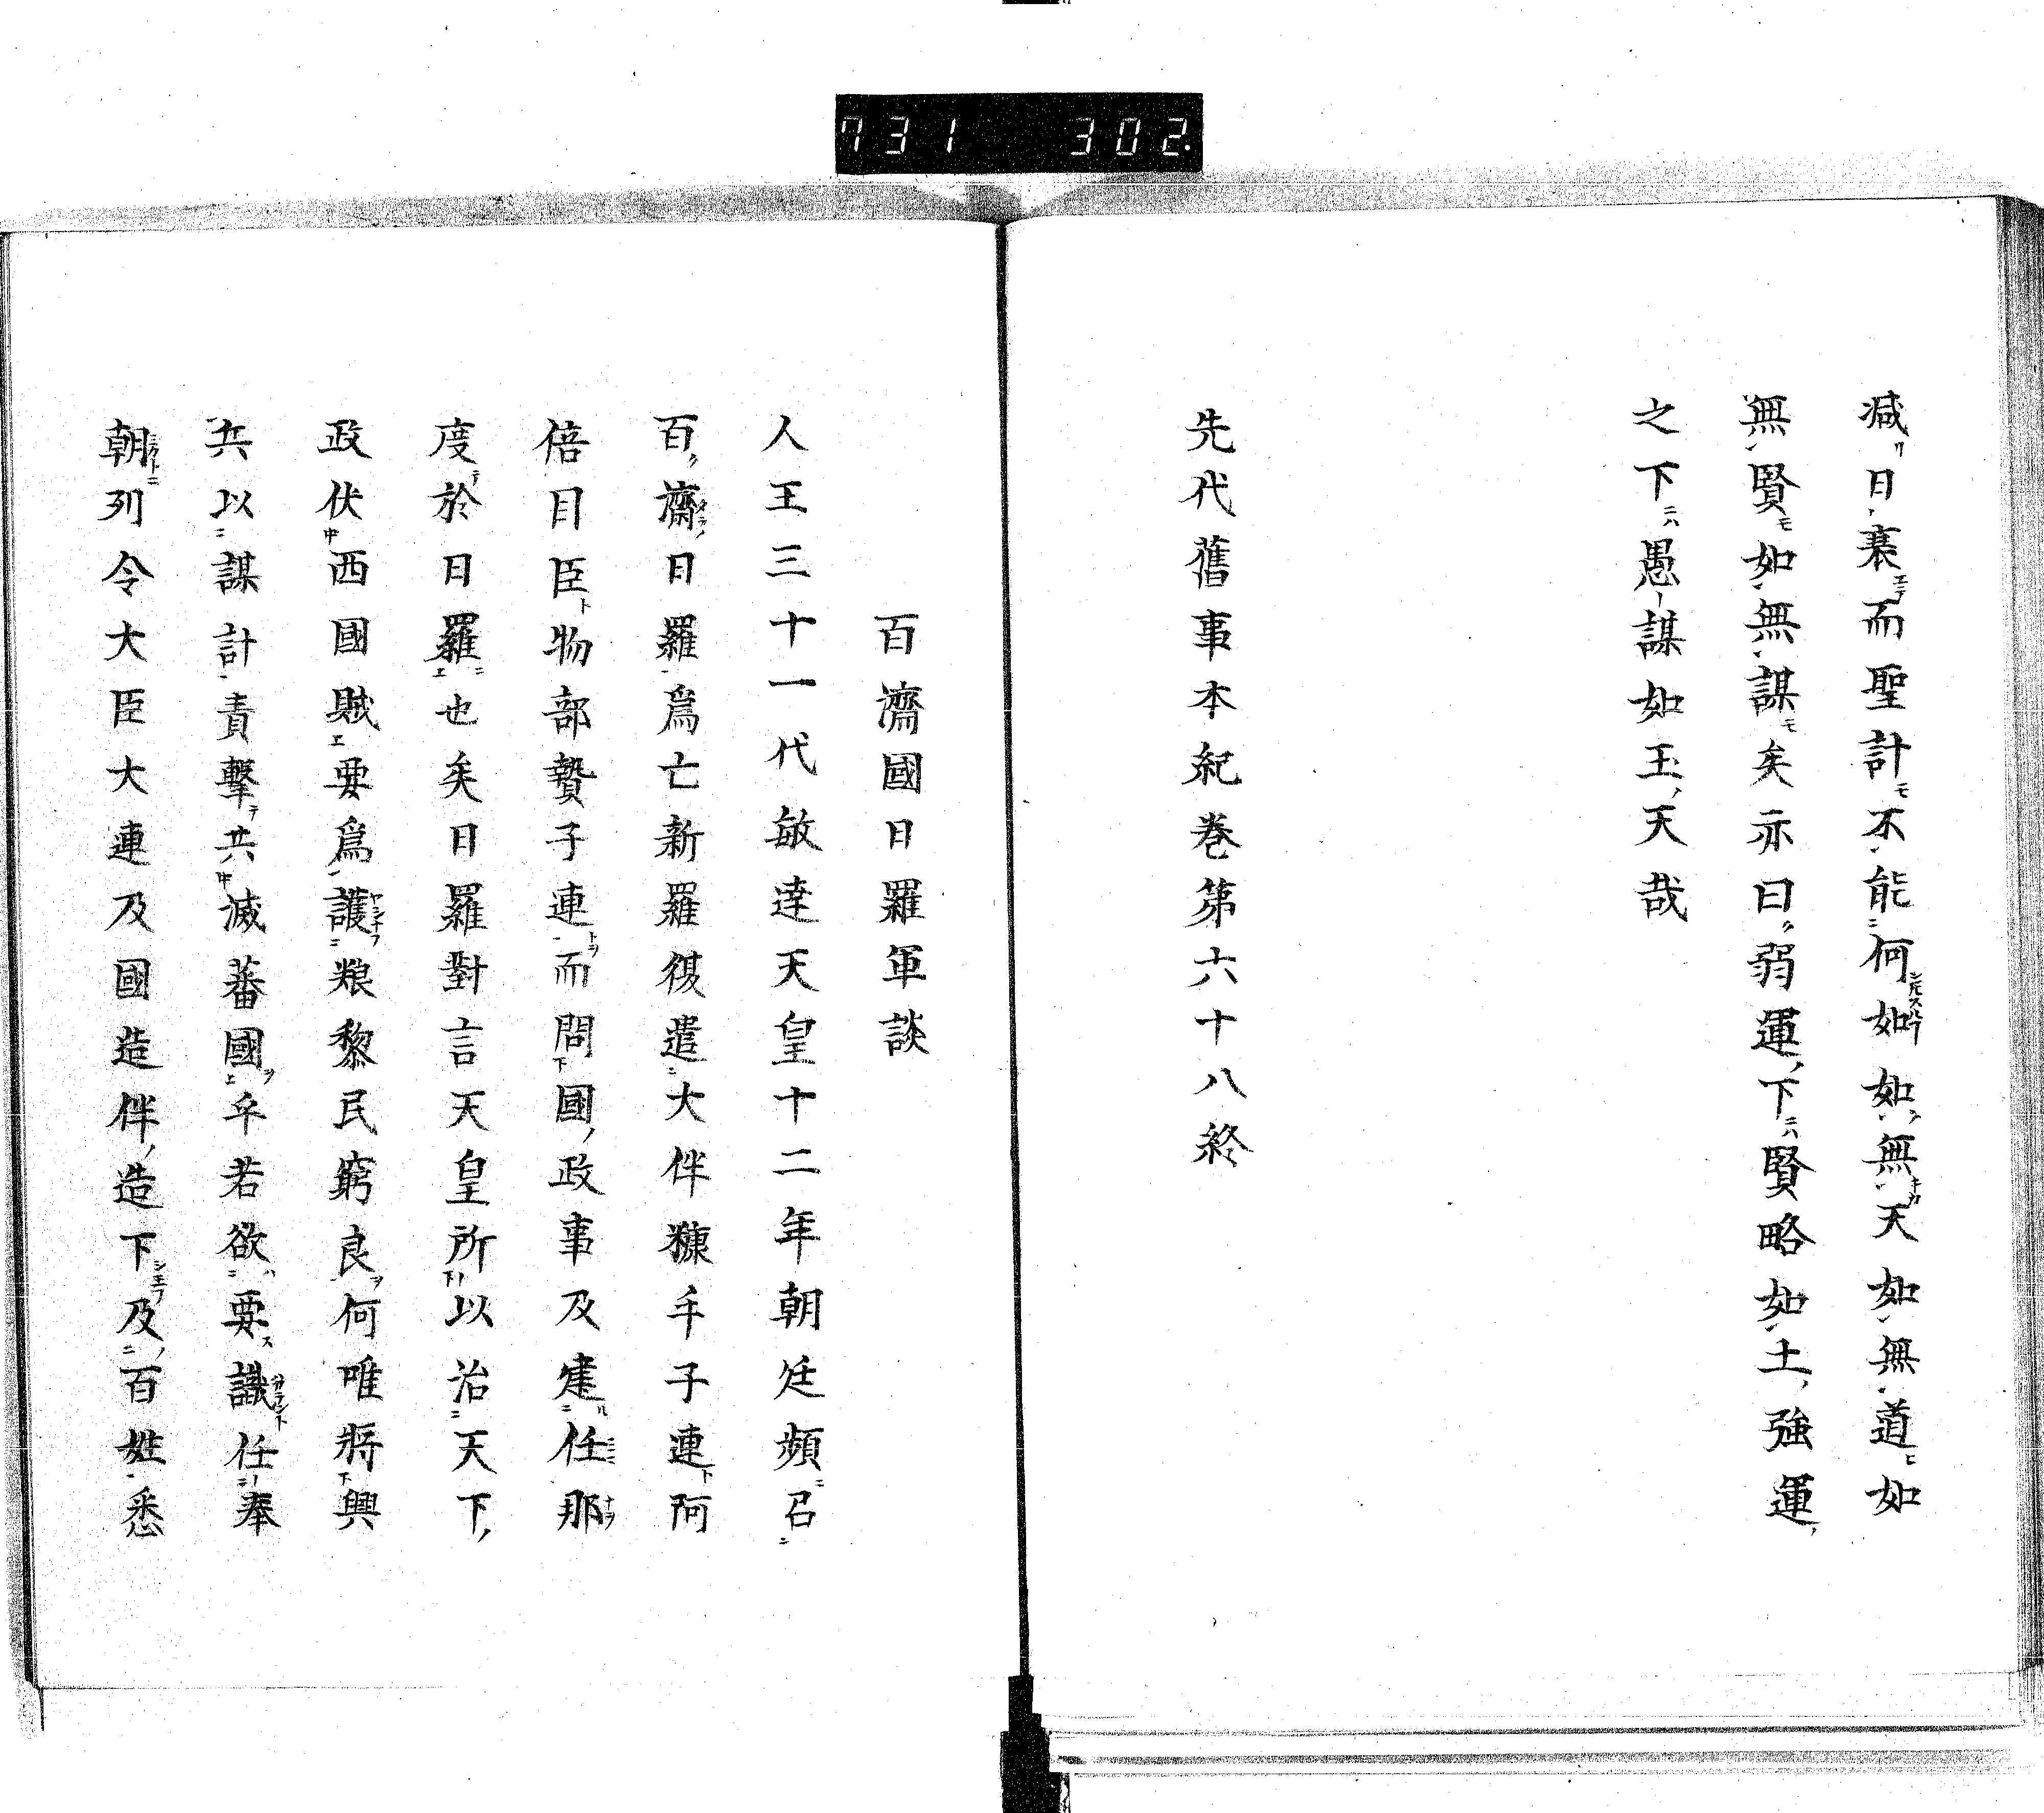 731 302.
減日衰而聖計不能何如如無天如無道如
無賢如無謀矣亦曰弱運下賢略如土強運
之下愚謀如玉天哉
先代舊事本紀巻第六十八終
百濟國日羅軍談
人王三十一代敏達天皇十二年朝廷頻召
百濟日羅為亡新羅復遣大伴糠手子連阿
倍目臣物部贄子連而問國政事及建任那
度於日羅也矣日羅對言天皇所以治天下
政伏西國賊要為護粮黎民窮良何唯將興
兵以謀計責擊共滅蕃國乎若欲要議任奉
朝列令大臣大連及國造伴造下及百姓悉